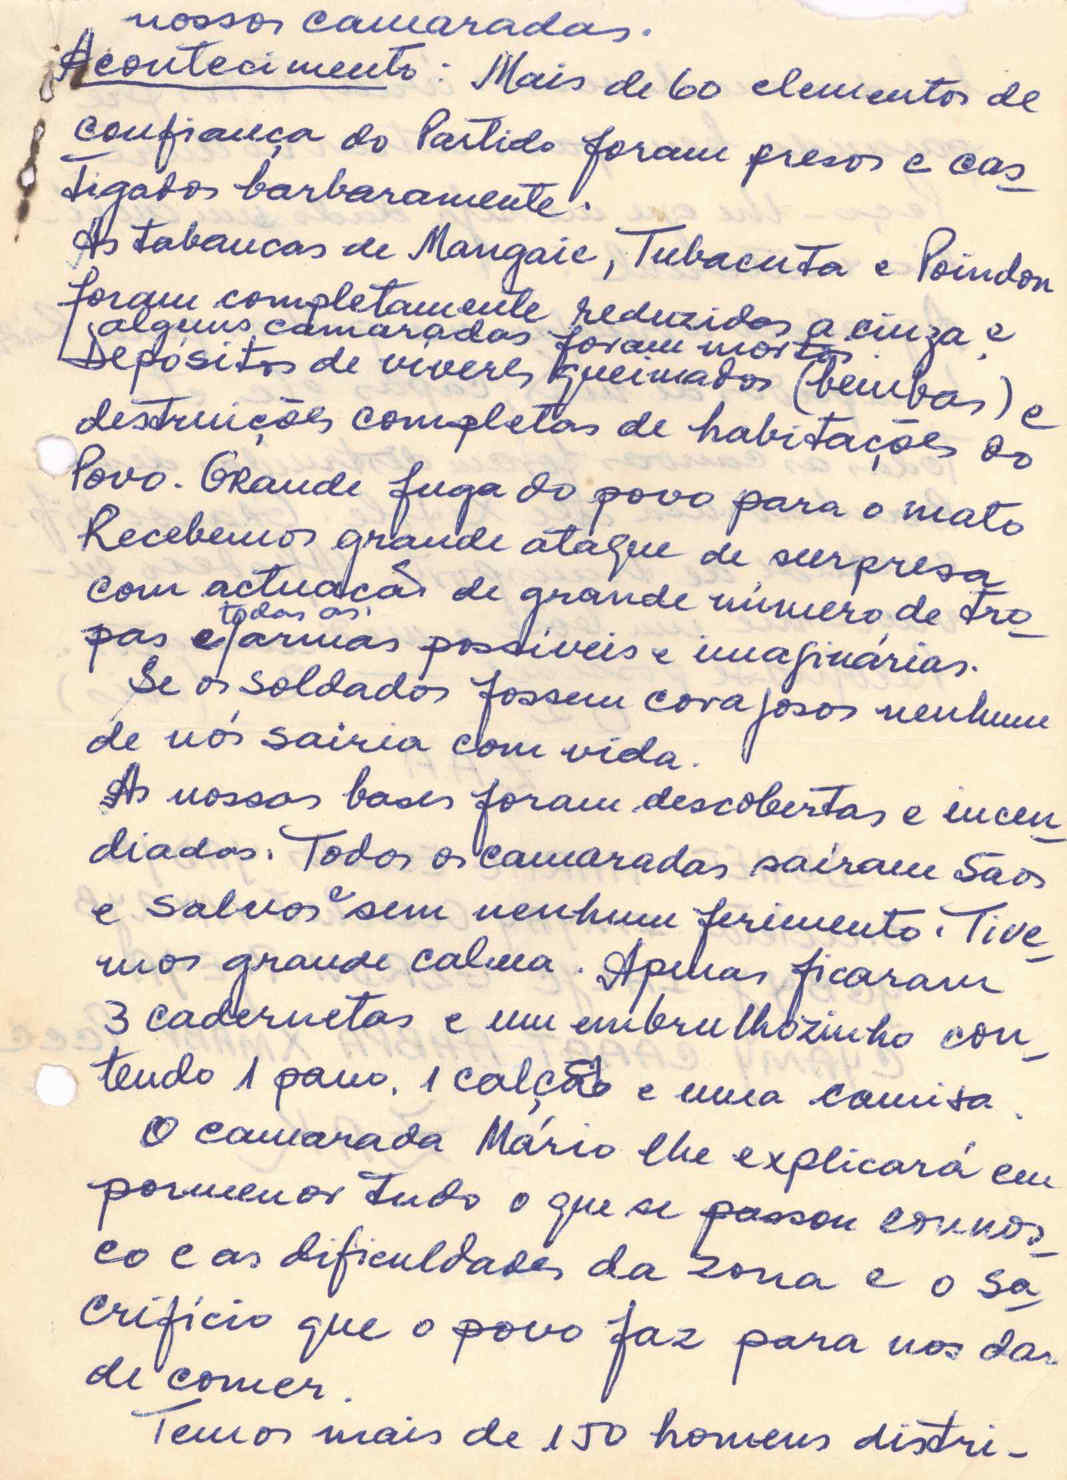 nossos camaradas.
Acontecimento: Mais de 60 elementos de
confiança do Partido foram presos e cas-
tigados barbaramente.
As tabancas de Mangaie, Tubacuta e Poindon
foram completamente reduzidas a cinza e
alguns camaradas foram mortos.
Depósitos de víveres queimados (bembas) e
destruições completas de habitações do
Povo. GRande fuga do povo para o mato
Recebemos grande ataque de surpresa
com actuação de grande número de tro-
todas as
pas e armas possíveis e imaginárias.
Se os soldados fossem corajosos nenhum
de nós sairia com vida.
As nossas bases foram descobertas e incen-
diadas. Todos os camaradas saíram sãos
e salvos e sem nenhum ferimento. Tive-
mos grande calma. Apenas ficaram
3 cadernetas e um embrulhozinho con-
tendo 1 pano, 1 calção e uma camisa.
O camarada Mário lhe explicará em
pormenor tudo o que se passou connos-
co e as dificuldades da zona e o sa-
crifício que o povo faz para nos dar
de comer.
Temos mais de 150 homens distri-